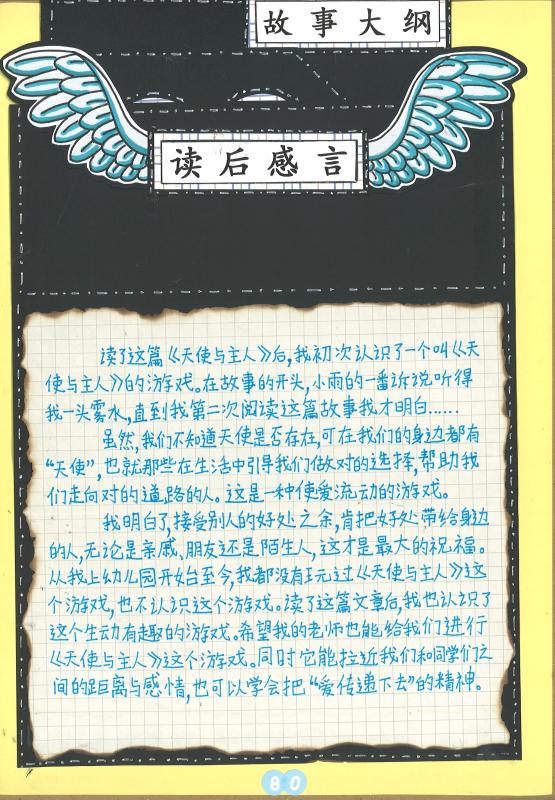 故事大纲
读后感言
读了这篇《天使与主人》后,我初次认识了一个叫《天
使与主人》的游戏。在故事的开头,小雨的一番诉说听得
我一头雾水,直到我第二次阅读这篇故事我才明白……
虽然,我们不知道天使是否存在,可在我们的身边都有
“天使”,也就那些在生活中引导我们做对的选择,帮助我
们走向对的道路的人。这是一种使爱流动的游戏。
我明白了,接受别人的好处之余,肯把好处带给身边
的人,无论是亲戚、朋友还是陌生人,这才是最大的祝福。
从我上幼儿园开始至今,我都没有玩过《天使与主人》这
个游戏,也不认识这个游戏。读了这篇文章后,我也认识了
这个生动有趣的游戏。希望我的老师也能给我们进行
《天使与主人》这个游戏。同时它能拉近我们和同学们之
间的距离与感情,也可以学会把“爱传递下去”的精神。
80